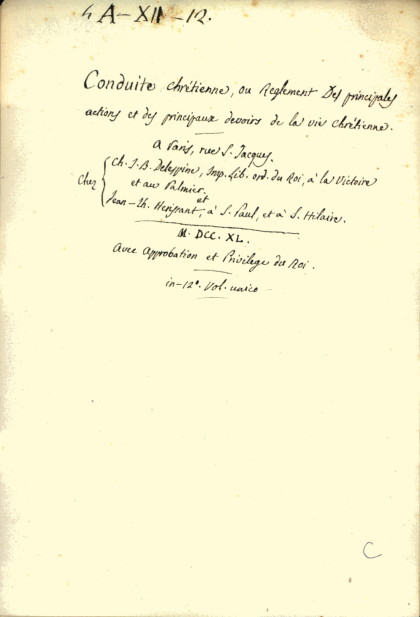 4 A-XII-12.
Conduite chrétienne, ou Reglement Des principales
actions et des principaux devoirs de la vie chrétienne.
A Paris, rue S. Jacques.
Chez
Ch. J. B. Delespine, Imp. Lib. ord. du Roi, à la Victoire
et au Palmier.
et
Jean-Th. Herissant, à S. Paul, et à S. Hilaire.
M. DCC. XL.
Avec Approbation et Privilege du Roi.
in-12º. Vol. unico
C